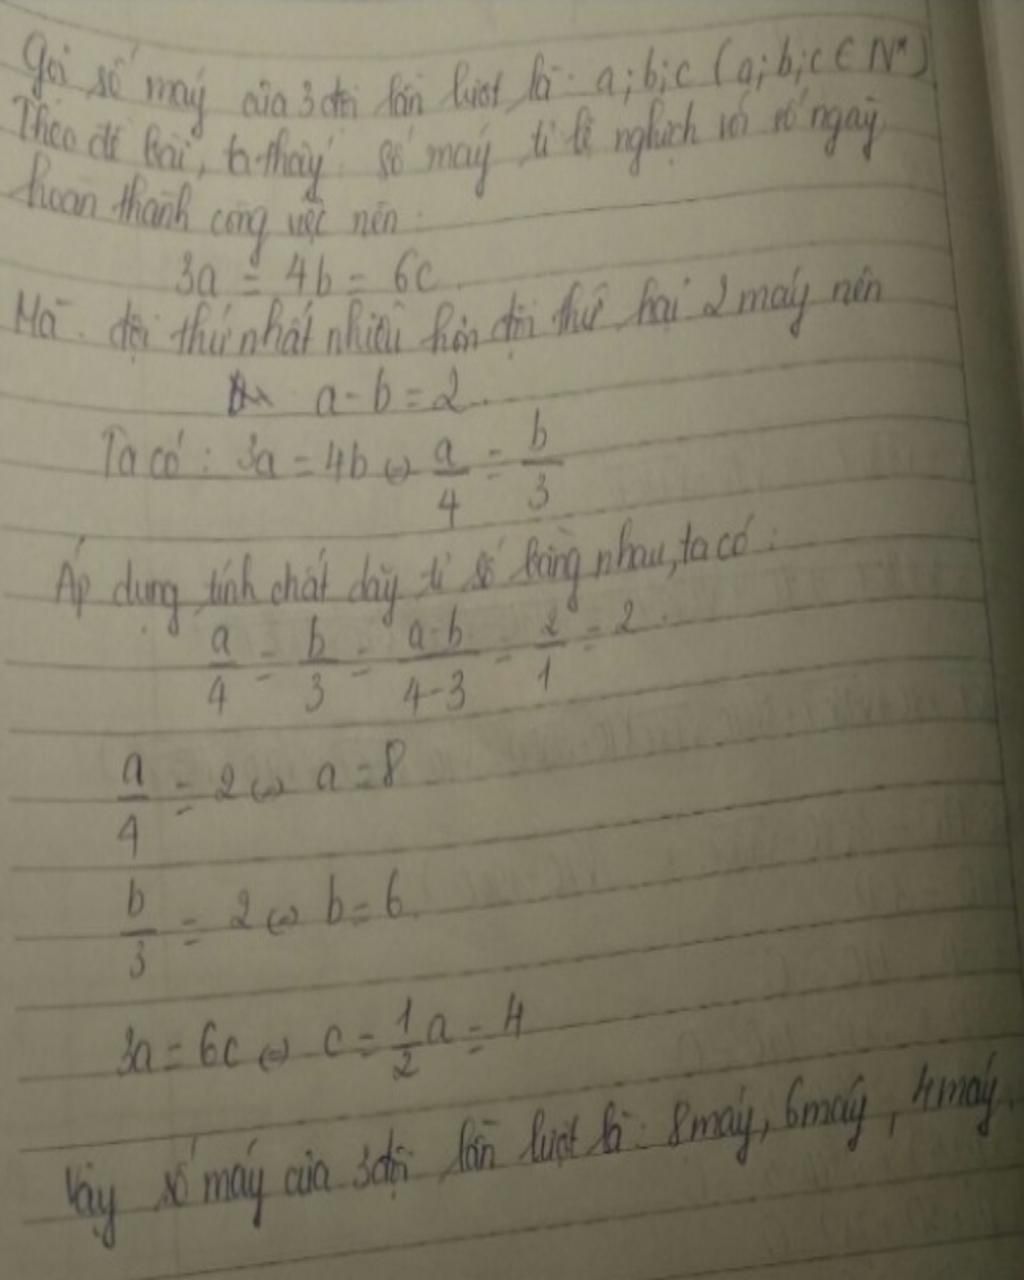 Gọi số máy của 3 đội lần lượt là: a;b;c (a;b;c ∈ N*)
Theo đề bài, ta thấy số máy tỉ lệ nghịch với số ngày
hoàn thành công việc nên:
3a = 4b = 6c.
Mà đội thứ nhất nhiều hơn đội thứ hai 2 máy nên
a-b=2.
Ta có: 3a = 4b ⇔ a/4 = b/3
Áp dụng tính chất dãy tỉ số bằng nhau, ta có:
a/4 = b/3 = (a-b)/(4-3) = 2/1 = 2.
a/4 = 2 ⇔ a = 8
b/3 = 2 ⇔ b = 6.
3a = 6c ⇔ c = 1/2 a = 4
Vậy số máy của 3 đội lần lượt là: 8 máy, 6 máy, 4 máy.